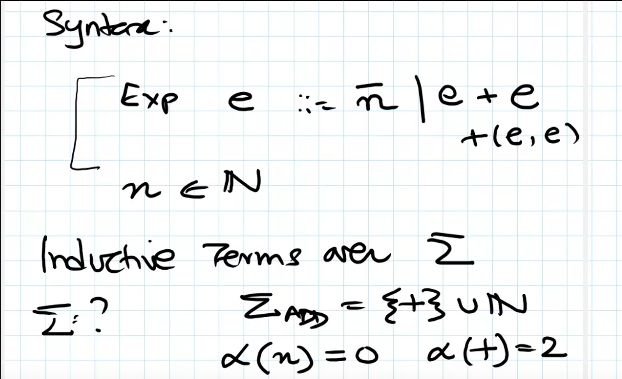 Syntax:
Exp e ::= n̅ | e + e
+(e, e)
n ∈ ℕ
Inductive Terms over Σ
Σ:? Σ_ADD = {+} ∪ ℕ
α(n) = 0 α(+) = 2